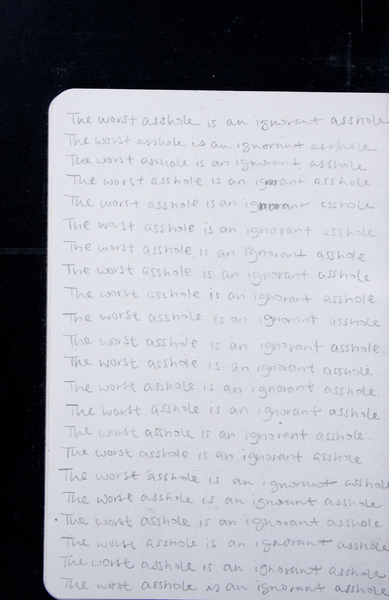 The worst asshole is an ignorant asshole
The worst asshole is an ignorant asshole.
The worst asshole is an ignorant asshole
The worst asshole is an ignorant asshole.
The worst asshole is an ignorant asshole
The worst asshole is an ignorant asshole
The worst asshole is an ignorant asshole
The worst asshole is an ignorant asshole
The worst asshole is an ignorant asshole
The worst asshole is an ignorant asshole
The worst asshole is an ignorant asshole.
The worst asshole is an ignorant asshole
The worst asshole is an ignorant asshole.
The worst asshole is an ignorant asshole.
The worst asshole is an ignorant asshole.
The worst asshole is an ignorant asshole
The worst asshole is an ignorant asshole
The worst asshole is an ignorant asshole
The worst asshole is an ignorant asshole
The worst asshole is an ignorant asshole
The worst asshole is an ignorant asshole
The worst asshole is an ignorant asshole